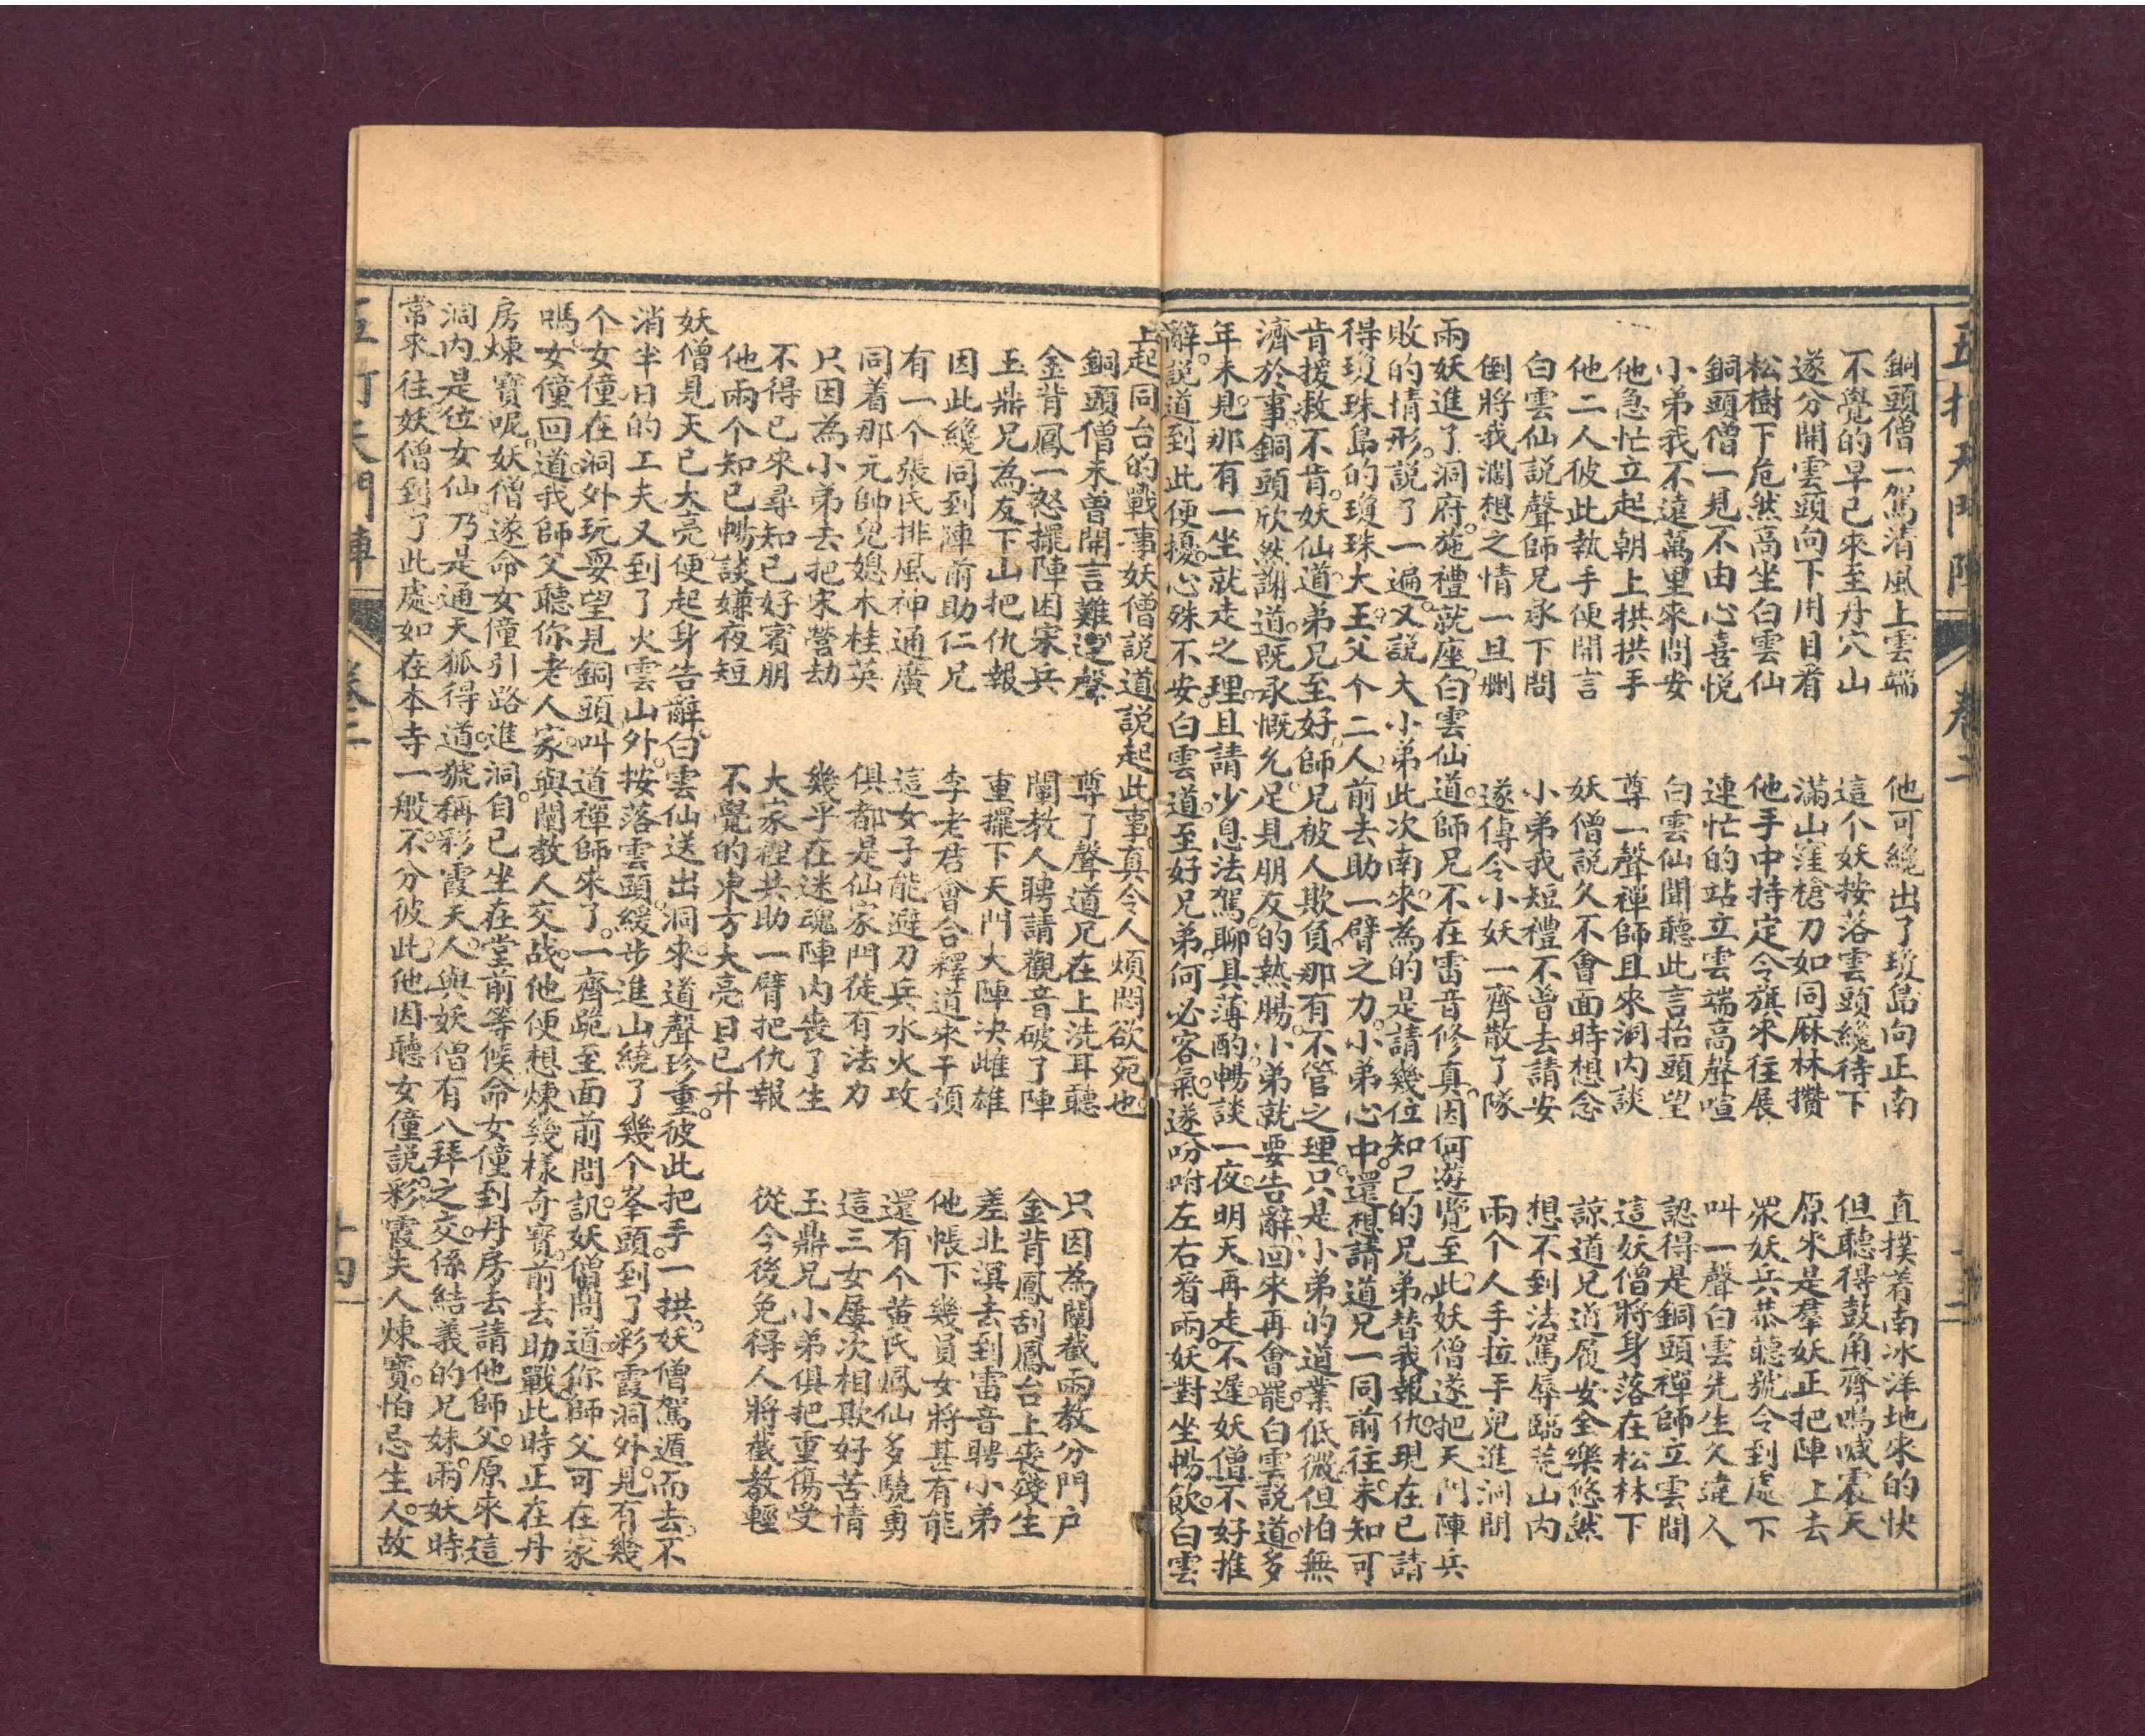 五打天門陣 卷二 十三
銅頭僧一駕清風上雲端 他可纔出了瓊島向正南 直撲着南冰洋地來的快
不覺的早已來至丹穴山 這个妖按落雲頭纔待下 但聽得鼓角齊鳴喊震天
遂分開雲頭向下用目看 滿山窪槍刀如同麻林攢 原來是羣妖正把陣上去
松樹下危然高坐白雲仙 他手中持定令旗來往展 眾妖兵恭聽號令到處下
銅頭僧一見不由心喜悅 連忙的站立雲端高聲喧 叫一聲白雲先生久違人
小弟我不遠萬里來問安 白雲仙聞聽此言抬頭望 認得是銅頭禪師立雲間
他急忙立起朝上拱拱手 尊一聲禪師且來洞內談 這妖僧將身落在松林下
他二人彼此執手便開言 妖僧說久不會面時想念 諒道兄道履安全樂悠然
白雲仙說聲師兄承下問 小弟我短禮不曾去請安 想不到法駕辱臨荒山內
倒將我濶想之情一旦刪 遂傳令小妖一齊散了隊 兩个人手拉手兒進洞間
兩妖進了洞府。施禮就座。白雲仙道。師兄不在雷音修真。因何遊覽至此。妖僧遂把天門陣兵
敗的情形。說了一遍。又說大小弟此次南來。為的是請幾位知己的兄弟。替我報仇。現在已請
得瓊珠島的瓊珠大王父个二人。前去助一臂之力。小弟心中。還想請道兄一同前往。未知可
肯援救不肯。妖仙道。弟兄至好。師兄被人欺負。那有不管之理。只是小弟的道業低微。但怕無
濟於事。銅頭欣然謝道。既承慨允。足見朋友的熱腸。小弟就要告辭。回來再會罷。白雲說道。多
年未見。那有一坐就走之理。且請少息法駕。聊具薄酌。暢談一夜。明天再走不遲。妖僧不好推
辭。說道。到此便擾。心殊不安。白雲道。至好兄弟。何必客氣。遂吩咐左右看兩。妖對坐暢飲。白雲
上起同台的戰事。妖僧說道。說起此事。真令人煩悶欲死也
銅頭僧未曾開言難連聲 尊了聲道兄在上洗耳聽 只因為闡截兩教分門戶
金背鳳一怒擺陣困宋兵 闡教人聘請觀音破了陣 金背鳳刮鳳台上喪殘生
玉鼎兄為友下山把仇報 重擺下天門大陣决雌雄 差北溟去到雷音聘小弟
因此纔同到陣前助仁兄 李老君會合釋道來干預 他帳下幾員女將甚有能
有一个張氏排風神通廣 這女子能避刀兵水火攻 還有个黃氏鳳仙多驍勇
同着那元帥兒媳木桂英 俱都是仙家門徒有法力 這三女屢次相欺好苦情
只因為小弟去把宋營劫 幾乎在迷魂陣內喪了生 玉鼎兄小弟俱把重傷受
不得已來尋知已好賓朋 大家裡共助一臂把仇報 從今後免得人將截教輕
他兩个知已暢談嫌夜短 不覺的東方大亮日已升
妖僧見天已大亮。便起身告辭。白雲仙送出洞來。道聲珍重。彼此把手。一拱。妖僧駕遁而去。不
消半日的工夫。又到了火雲山外。按落雲頭。緩步進山。繞了幾个峯頭。到了彩霞洞外。見有幾
个女僮在洞外玩耍。望見銅頭。叫道禪師來了。一齊跪至面前問訊。妖僧問道。你師父可在家
嗎。女僮回道。我師父聽你老人家。與闡教人交战。他便想煉幾樣奇寶。前去助戰。此時正在丹
房煉寶呢。妖僧遂命女僮引路進洞。自已坐在堂前等候。命女僮到丹房去請他師父。原來這
洞內是位女仙。乃是通天狐得道。號稱彩霞天人。與妖僧有八拜之交。係結義的兄妹。兩妖時
常來往。妖僧到了此處。如在本寺一般。不分彼此。他因聽女僮說。彩霞夫人煉寶。怕忌生人。故
五打天門陣 卷二 十四